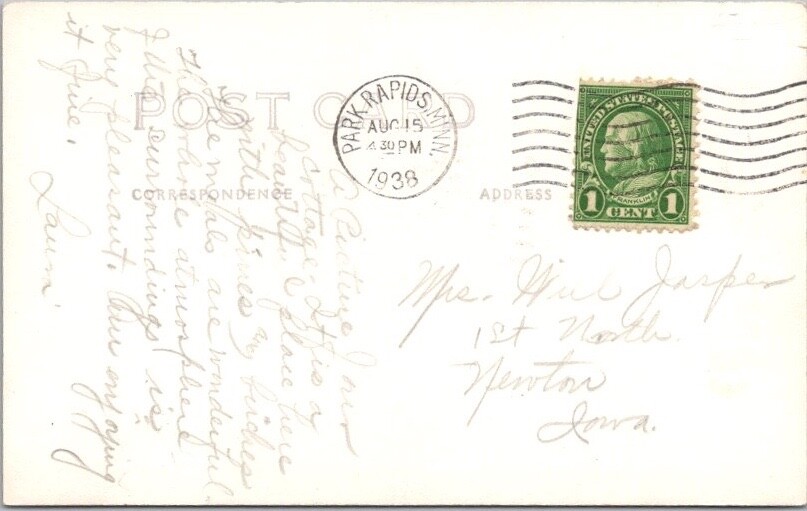 POST CARD
CORRESPONDENCE
ADDRESS
PARK RAPIDS, MINN.
AUG 15
4 30 PM
1938
UNITED STATES POSTAGE
FRANKLIN
1 CENT 1
A Picture of our
cottage. It is a
beautiful place here
with pines & birches
The meals are wonderful.
The whole atmosphere
of the surroundings is
very pleasant. Am enjoying
it fine.
Laura
Mrs. Will Jasper
1st North
Newton
Iowa.